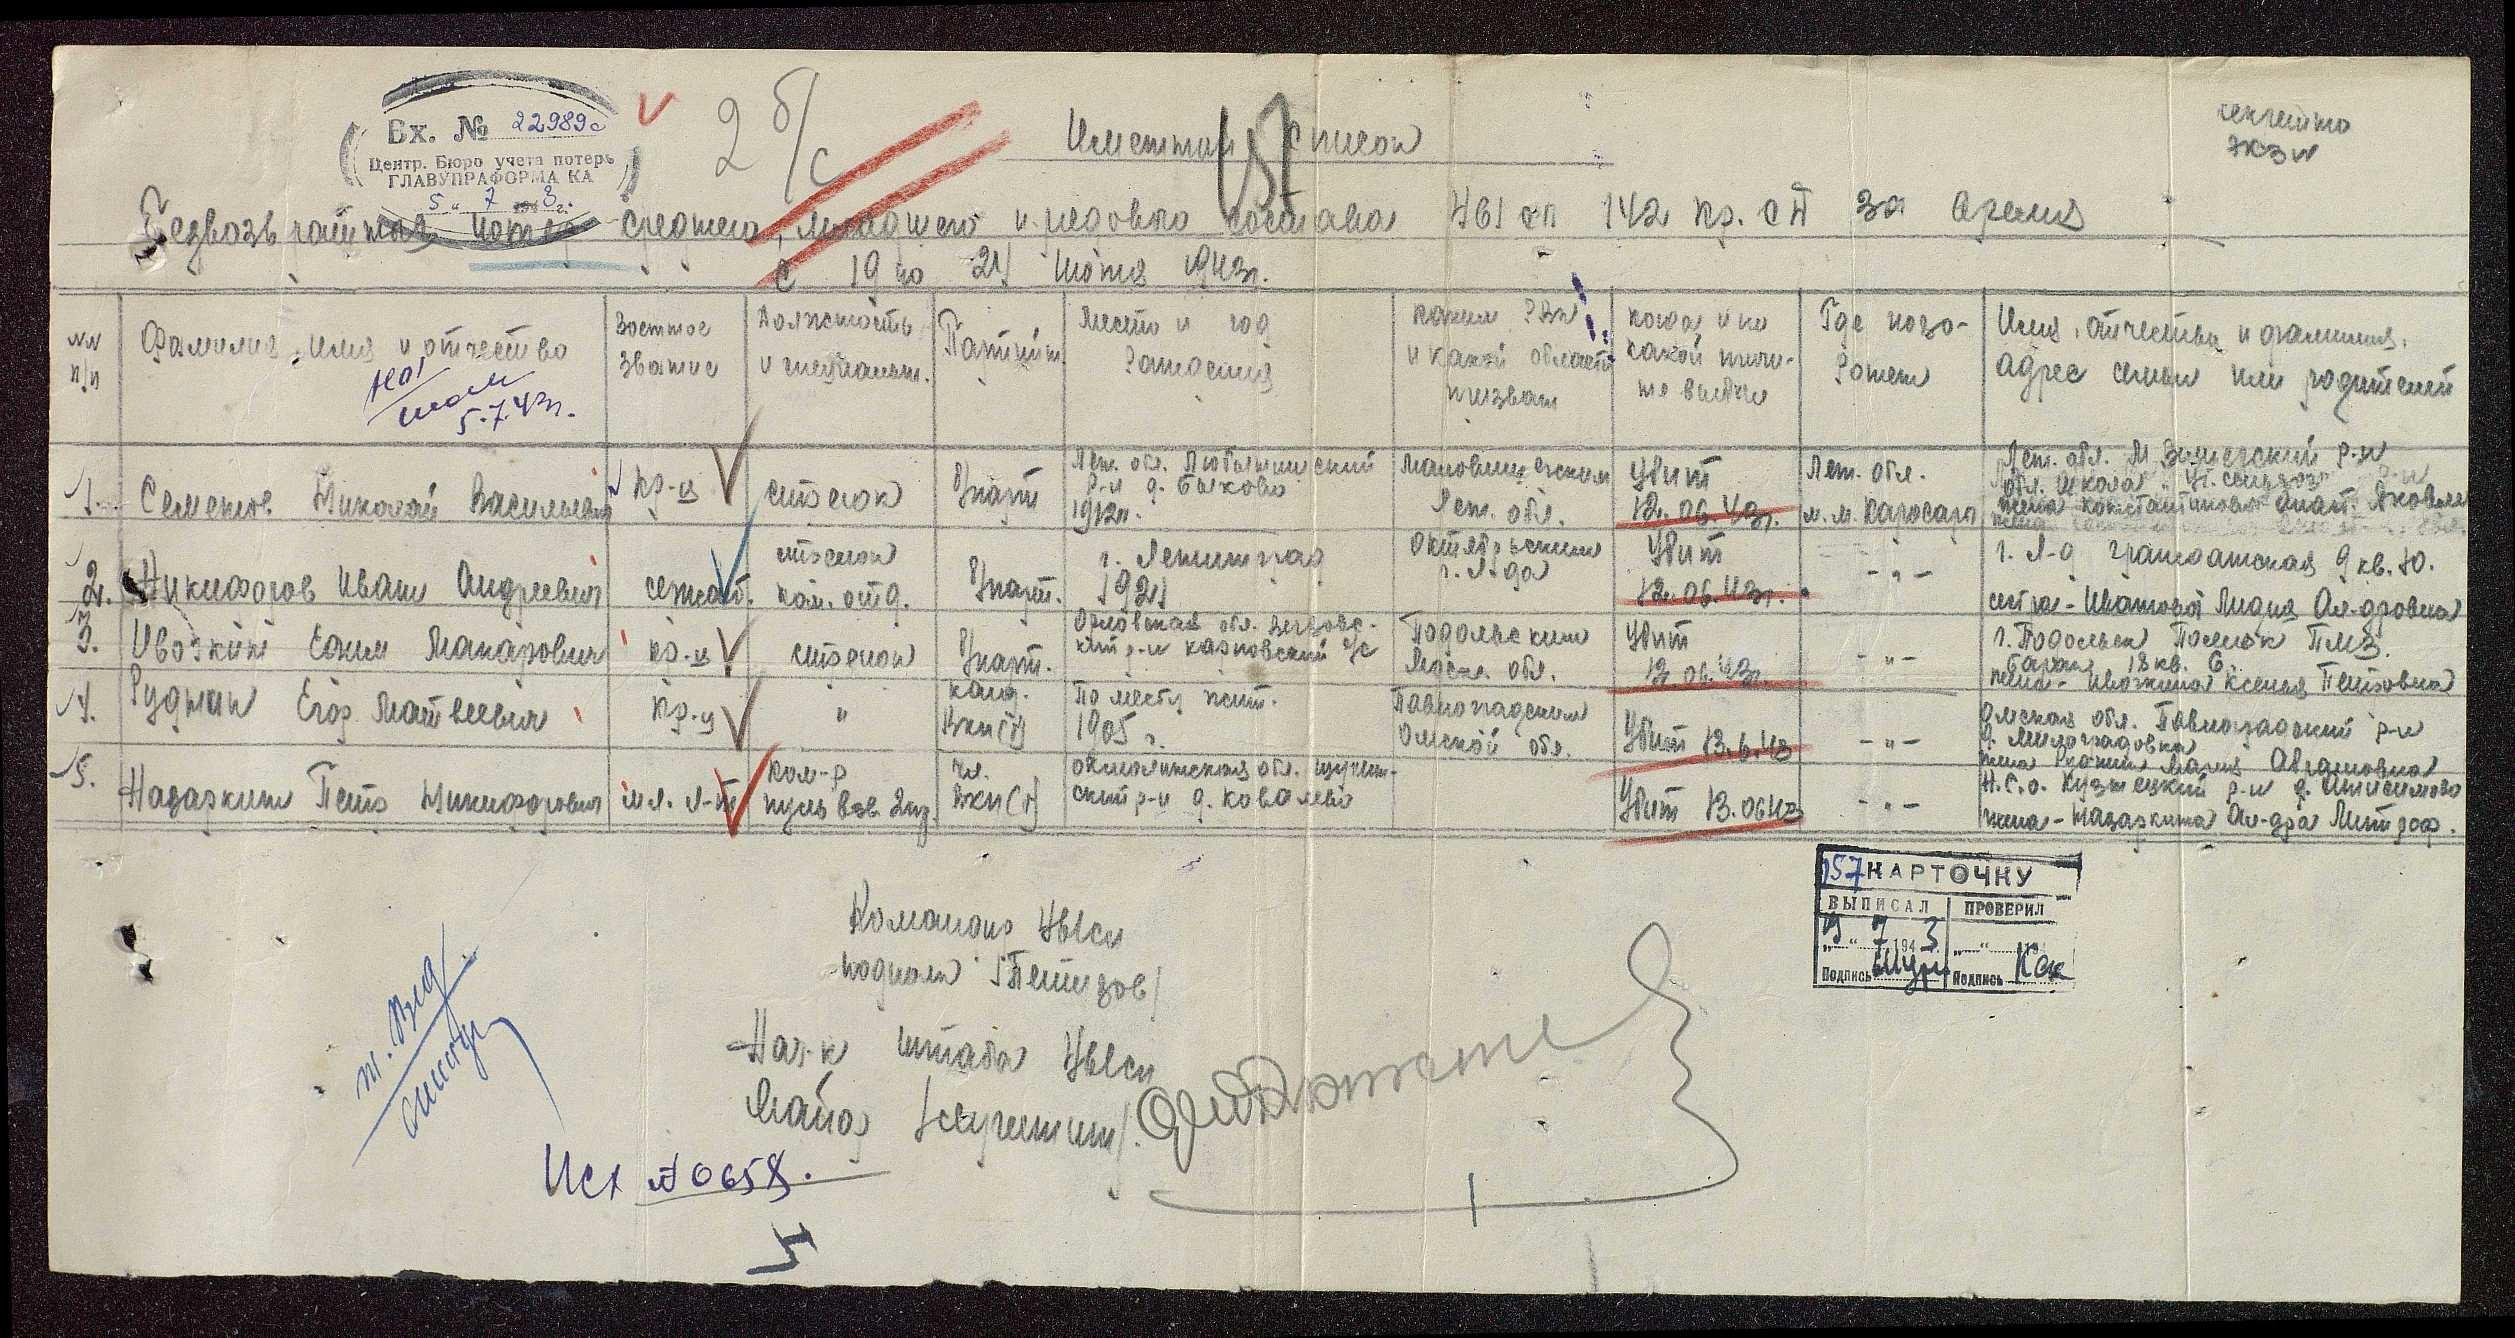 Вх. № 22989с
Центр. Бюро учета потерь
ГЛАВУПРАФОРМА КА
5 " 7 1943 г.
2 б/с
157
Именной список
секретно
экз N
Безвозвратных потерь среднего, младшего и рядового состава 461 сп 142 кр. сд за время
с 19 по 21 июня 1943г.
№№ п/п
Фамилия, имя и отчество
Военное звание
Должность и специальн.
Партийн.
Место и год рождения
каким РВК и какой области призван
когда и по какой причине выбыл
Где похоронен
Имя, отчество и фамилия, адрес семьи или родителей
5.7.43г.
1. Семенов Николай Васильевич кр-ц стрелок б/парт Лен. обл. Любытинский р-н д. Быково 1912г. Маловишерским Лен. обл. Убит 12.06.43г. Лен. обл. Лен. обл. М Вишерский р-н
жена Константинова Анат. Яковлев
2. Никифоров Иван Андреевич сержант. стрелок ком. отд. б/парт. г. Ленинград 1921 Октябрьским г. Л-да Убит 12.06.43г. -"- г. Л-д 9 кв. 10.
сестра - Иванова Лидия Ал-дровна
3. Ивочкин Ефим Макарович кр-ц стрелок б/парт. Орловская обл. р-н Карповский с/с Подольским Моск. обл. Убит 12.06.43г. -"- г. Подольск Поселок ПМЗ.
барак 18 кв. 6.
жена - Ивочкина Ксенья Петровна
4. Рудман Егор Матвеевич кр-ц " канд. ВКП(б) По месту жит. 1905 г. Павлоградским Омской обл. Убит 13.6.43 -"- Омская обл. Павлоградский р-н
д. Милоградовка
жена Мария Абрамовна
5. Назаркин Петр Никифорович мл. л-т ком-р пул. взв. чл. ВКП(б) Акмолинская обл. р-н д. Ковалево Убит 13.06.43 -"- Н.С.о. Кузнецкий р-н д. Анисимово
жена - Назаркина Ал-дра Митроф.
157 КАРТОЧКУ
ВЫПИСАЛ ПРОВЕРИЛ
"19" 7 1943 " " 19
Подпись Подпись
Командир 461сп
подполк /Петизов/
Нач-к штаба 461сп
Майор
Исх № 0658.